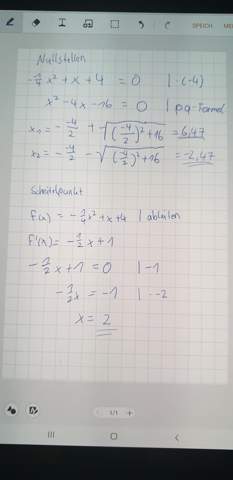 SPEICH
Nullstellen
-1/4 x² + x + 4 = 0 | ·(-4)
x² - 4x - 16 = 0 | pq-Formel
x₁ = - -4/2 + √((-4/2)² + 16) = 6,47
x₂ = - -4/2 - √((-4/2)² + 16) = -2,47
Scheitelpunkt
f(x) = -1/4 x² + x + 4 | ableiten
f'(x) = -1/2 x + 1
-1/2 x + 1 = 0 | -1
-1/2 x = -1 | · -2
x = 2
1/1